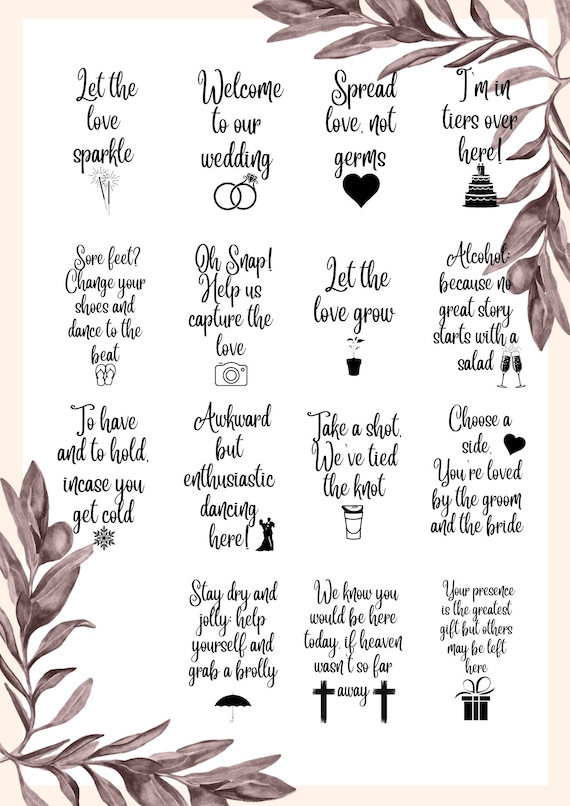 Let the
love
sparkle
Welcome
to our
wedding
Spread
love, not
germs
I'm in
tiers over
here!
Sore feet?
Change your
shoes and
dance to the
beat
Oh Snap!
Help us
capture the
love
Let the
love grow
Alcohol:
because no
great story
starts with a
salad
To have
and to hold,
incase you
get cold
Awkward
but
enthusiastic
dancing
here!
Take a shot,
We've tied
the knot
Choose a
side,
You're loved
by the groom
and the bride
Stay dry and
jolly; help
yourself and
grab a brolly
We know you
would be here
today, if heaven
wasn't so far
away
Your presence
is the greatest
gift but others
may be left
here